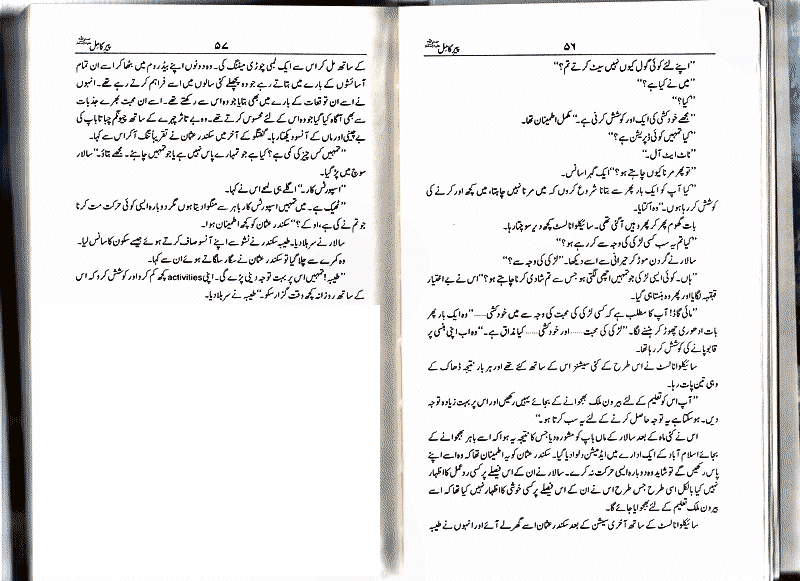 پیر کامل ﷺ ۵۶
”اپنے لئے کوئی گول کیوں نہیں سیٹ کرتے تم؟“
”میں نے کیا ہے؟“
”کیا؟“
”مجھے خودکشی کی ایک اور کوشش کرنی ہے۔“ مکمل اطمینان تھا۔
”کیا تمہیں کوئی ڈپریشن ہے؟“
”ناٹ ایٹ آل۔“
”تو پھر مرنا کیوں چاہتے ہو؟“ ایک گہرا سانس۔
”کیا آپ کو ایک بار پھر سے بتانا شروع کروں کہ میں مرنا نہیں چاہتا، میں کچھ اور کرنے کی
کوشش کر رہا ہوں۔“ وہ اکتایا۔
بات گھوم پھر کر پھر وہیں آ گئی تھی۔ سائیکلوانالسٹ کچھ دیر سوچتا رہا۔
”کیا تم یہ سب کسی لڑکی کی وجہ سے کر رہے ہو؟“
سالار نے گردن موڑ کر حیرانی سے اسے دیکھا۔ ”لڑکی کی وجہ سے؟“
”ہاں۔ کوئی ایسی لڑکی جو تمہیں اچھی لگتی ہو جس سے تم شادی کرنا چاہتے ہو؟“ اس نے بے اختیار
قہقہہ لگایا اور پھر وہ ہنستا ہی گیا۔
”مائی گاڈ! آپ کا مطلب ہے کہ کسی لڑکی کی محبت کی وجہ سے میں خودکشی……“ وہ ایک بار پھر
بات ادھوری چھوڑ کر ہنسنے لگا۔ ”لڑکی کی محبت …… اور خودکشی …… کیا مذاق ہے۔“ وہ اب اپنی ہنسی پر
قابو پانے کی کوشش کر رہا تھا۔
سائیکلوانالسٹ نے اس طرح کے کئی سیشنز اس کے ساتھ کئے تھے اور ہر بار نتیجہ ڈھاک کے
وہی تین پات رہا۔
”آپ اس کو تعلیم کے لئے بیرون ملک بھجوانے کے بجائے یہیں رکھیں اور اس پر بہت زیادہ توجہ
دیں۔ ہو سکتا ہے یہ توجہ حاصل کرنے کے لئے یہ سب کرتا ہو۔“
اس نے کئی ماہ کے بعد سالار کے ماں باپ کو مشورہ دیا جس کا نتیجہ یہ ہوا کہ اسے باہر بھجوانے کے
بجائے اسلام آباد کے ایک ادارے میں ایڈمیشن دلوا دیا گیا۔ سکندر عثمان کو یہ اطمینان تھا کہ وہ اسے اپنے
پاس رکھیں گے تو شاید وہ دوبارہ ایسی حرکت نہ کرے۔ سالار نے ان کے اس فیصلے پر کسی ردعمل کا اظہار
نہیں کیا بالکل اسی طرح جس طرح اس نے ان کے اس فیصلے پر کسی خوشی کا اظہار نہیں کیا تھا کہ اسے
بیرون ملک تعلیم کے لئے بھجوایا جائے گا۔
سائیکلوانالسٹ کے ساتھ آخری سیشن کے بعد سکندر عثمان اسے گھر لے آئے اور انہوں نے طیبہ
پیر کامل ﷺ ۵۷
کے ساتھ مل کر اس سے ایک لمبی چوڑی میٹنگ کی۔ وہ دونوں اپنے بیڈروم میں بٹھا کر اسے ان تمام
آسائشوں کے بارے میں بتاتے رہے جو وہ پچھلے کئی سالوں میں اسے فراہم کرتے رہے تھے۔ انہوں
نے اسے ان توقعات کے بارے میں بھی بتایا جو وہ اس سے رکھتے تھے۔ اسے ان محبت بھرے جذبات
سے بھی آگاہ کیا گیا جو وہ اس کے لئے محسوس کرتے تھے۔ وہ بے تاثر چہرے کے ساتھ چیونگم چباتا باپ کی
بے چینی اور ماں کے آنسو دیکھتا رہا۔ گفتگو کے آخر میں سکندر عثمان نے تقریباً تنگ آ کر اس سے کہا۔
”تمہیں کس چیز کی کمی ہے؟ کیا ہے جو تمہارے پاس نہیں ہے یا جو تمہیں چاہئے۔ مجھے بتاؤ۔“ سالار
سوچ میں پڑ گیا۔
”اسپورٹس کار۔“ اگلے ہی لمحے اس نے کہا۔
”ٹھیک ہے۔ میں تمہیں اسپورٹس کار باہر سے منگوا دیتا ہوں مگر دوبارہ ایسی کوئی حرکت مت کرنا
جو تم نے کی ہے، او کے؟“ سکندر عثمان کو کچھ اطمینان ہوا۔
سالار نے سر ہلا دیا۔ طیبہ سکندر نے ٹشو سے اپنے آنسو صاف کرتے ہوئے جیسے سکون کا سانس لیا۔
وہ کمرے سے چلا گیا تو سکندر عثمان نے سگار سلگاتے ہوئے ان سے کہا۔
”طیبہ! تمہیں اس پر بہت توجہ دینی پڑے گی۔ اپنی activities کچھ کم کرو اور کوشش کرو کہ اس
کے ساتھ روزانہ کچھ وقت گزار سکو۔“ طیبہ نے سر ہلا دیا۔